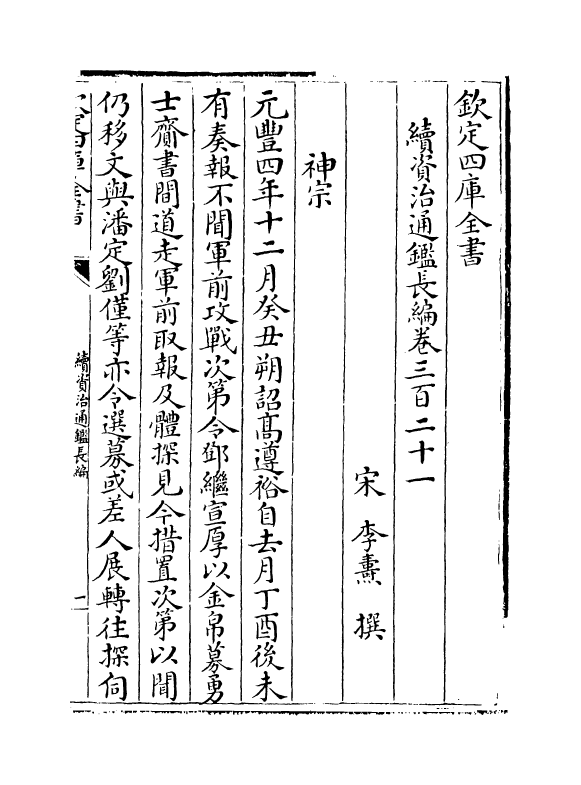 欽定四庫全書
續資治通鑑長編卷三百二十一
宋 李燾 撰
神宗
元豐四年十二月癸丑朔詔髙遵裕自去月丁酉後未
有奏報不聞軍前攻戰次第令鄧繼宣厚以金帛募勇
士齎書間道走軍前取報及體探見今措置次第以聞
仍移文與潘定劉僅等亦令選募或差人展轉往探伺
欽定四庫全書
續資治通鑑長編
一